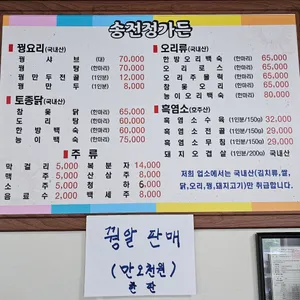 송전정가든
꿩요리(국내산)
꿩 샤브 (대) 70.000
꿩 탕 (한마리) 70.000
꿩만두전골 (1인분) 12.000
꿩만두 8.000
토종닭(국내산)
참옻닭 (한마리) 65.000
도리탕 (한마리) 60.000
한방백숙 (한마리) 60.000
능이백숙 (한마리) 75.000
주류
막걸리 5.000 복분자 14.000
맥주 5.000 산삼주 8.000
소주 5.000 청하 6.000
음료수 2.000 백세주 8.000
오리류(국내산)
한방오리백숙 (한마리) 65.000
오리로스 (한마리) 65.000
오리주물럭 (한마리) 65.000
참옻오리 (한마리) 65.000
능이오리백숙 (한마리) 80.000
흑염소(호주산)
흑염소수육 (1인분/150g) 32.000
흑염소전골 (1인분/150g) 29.000
흑염소무침 (1인분/150g) 29.000
돼지오겹살 (1인분/200g) 국내산
저희 업소에서는 국내산(김치류,쌀,
닭,오리,꿩,돼지고기)만 취급합니다.
꿩알 판매
(만오천원)
한판